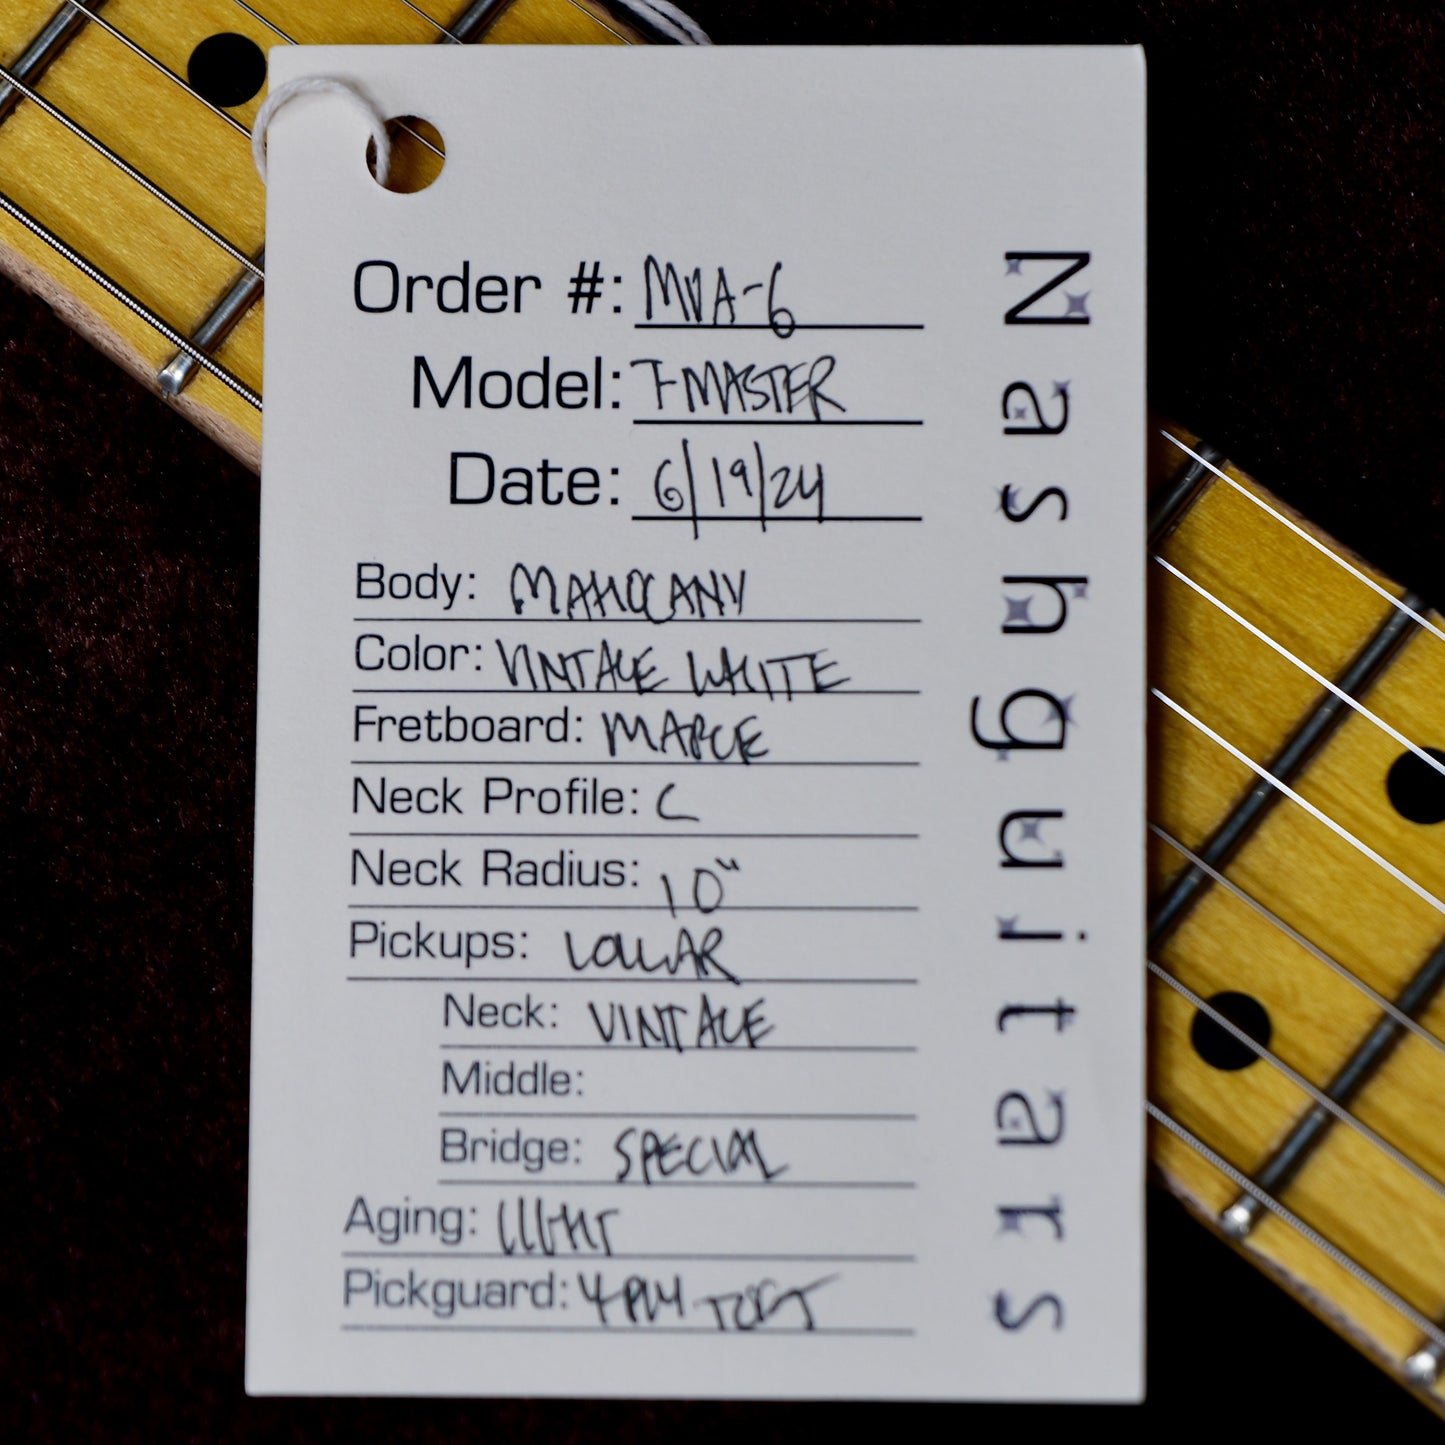 Order #: MVA-6
Model: T-MASTER
Date: 6/19/24
Body: MAHOGANY
Color: VINTAGE WHITE
Fretboard: MAPLE
Neck Profile: C
Neck Radius: 10"
Pickups: LOLLAR
Neck: VINTAGE
Middle:
Bridge: SPECIAL
Aging: LIGHT
Pickguard: 4 PLY TORT
Nashguitars